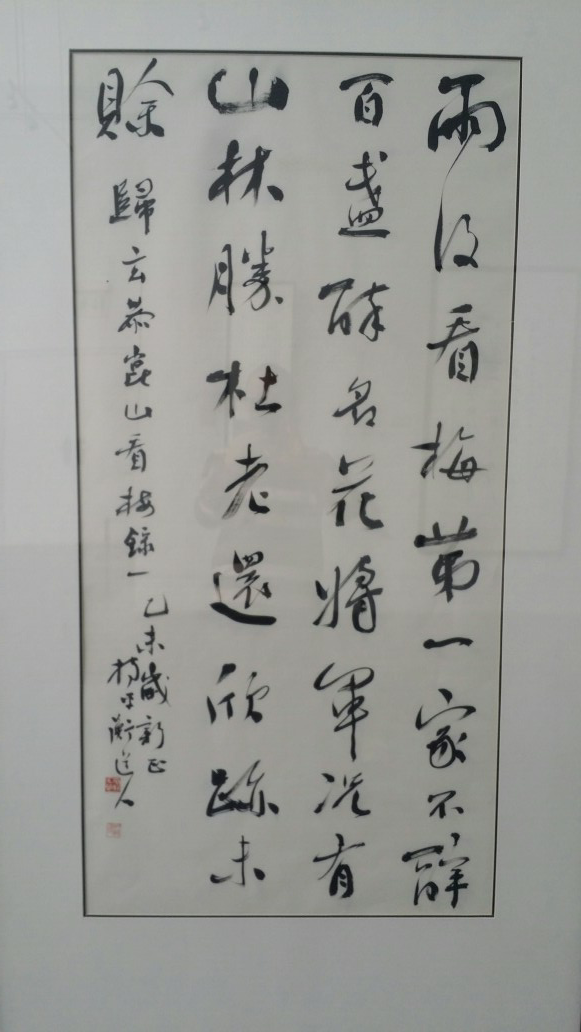 雨後看梅第一家不辭
百盞醉名花將軍況有
山林勝杜老還欣跡未
賒
歸玄恭崑山看梅錄一
乙未歲新正
道人